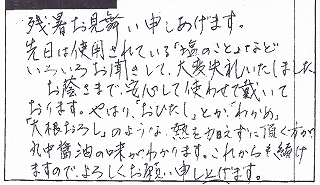 残暑お見舞い申しあげます。
先日は使用されている「塩のこと」など
いろいろお聞きして、大変失礼いたしました
お蔭さまで、安心して使わせて戴いて
おります。やはり、「おひたし」とか「わかめ」
「大根おろし」のような、熱を加えずに頂く方が
丸中醤油の味がわかります。これからも続け
ますので、よろしくお願い申し上げます。